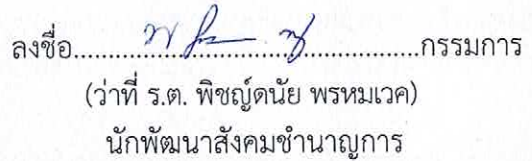 ลงชื่อ............................................กรรมการ
(ว่าที่ ร.ต. พิชญ์ดนัย พรหมเวค)
นักพัฒนาสังคมชำนาญการ